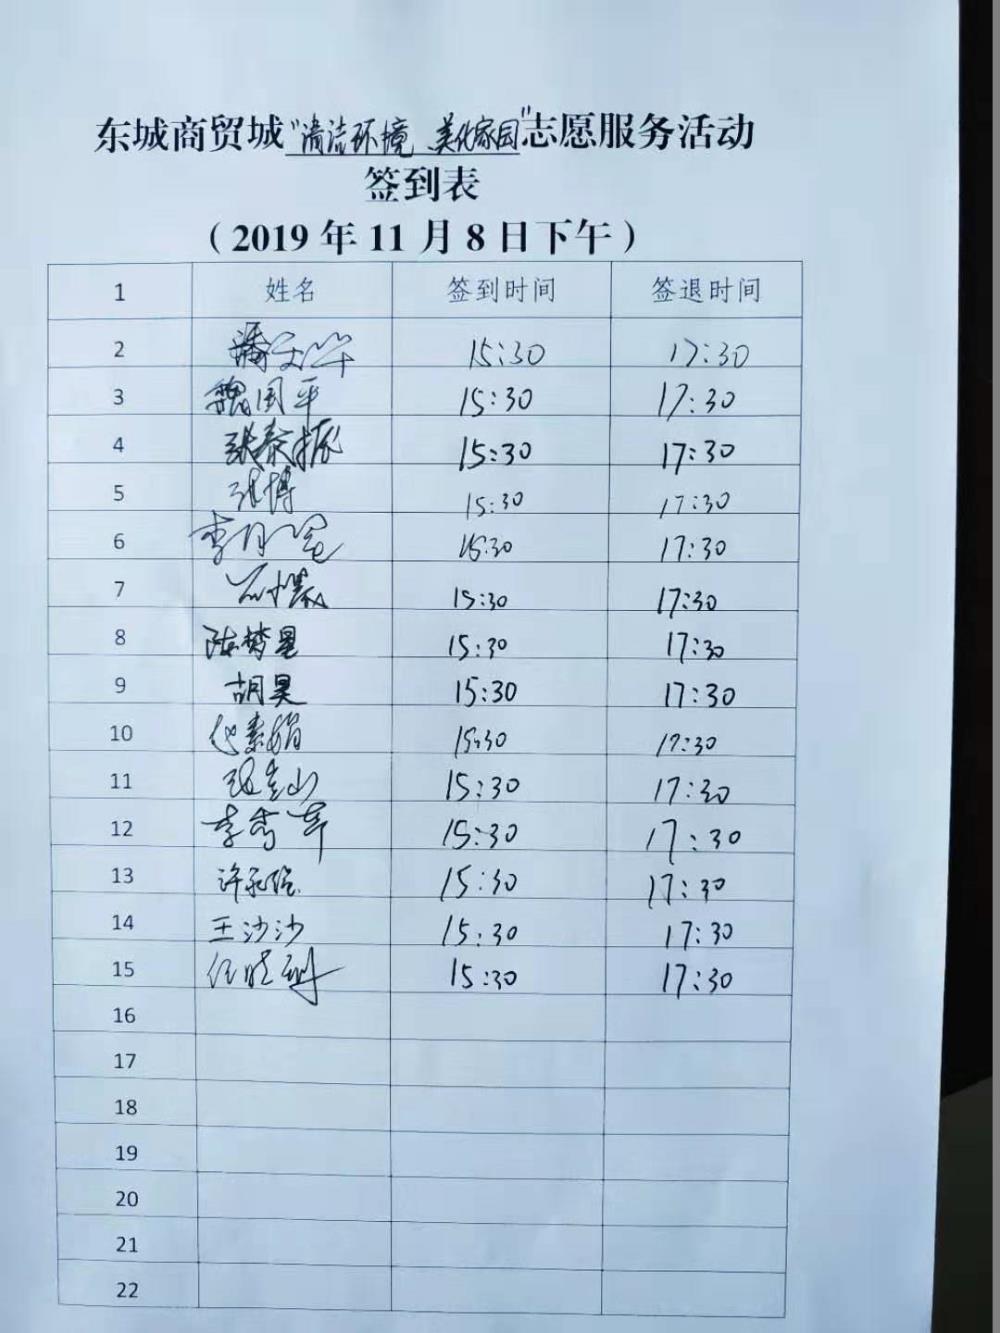 东城商贸城"清洁环境 美化家园"志愿服务活动
签到表
（2019 年 11 月 8 日下午）
1 姓名 签到时间 签退时间
2 15:30 17:30
3 魏国平 15:30 17:30
4 张泰振 15:30 17:30
5 张博 15:30 17:30
6 15:30 17:30
7 15:30 17:30
8 陈梦星 15:30 17:30
9 胡昊 15:30 17:30
10 代素娟 15:30 17:30
11 15:30 17:30
12 15:30 17:30
13 15:30 17:30
14 王沙沙 15:30 17:30
15 15:30 17:30
16
17
18
19
20
21
22